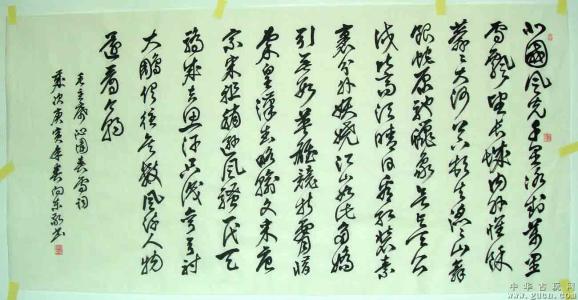 北國風光千里冰封萬里
雪飄望長城内外惟餘
莽々大河上下頓失滔々山舞
銀蛇原馳蠟象欲与天公
試比高須晴日看紅裝素
裹分外妖嬈江山如此多嬌
引无數英雄競折腰惜
秦皇漢武略輸文采唐
宗宋祖稍遜風騷一代天
驕成吉思汗只識彎弓射
大雕俱往矣數風流人物
還看今朝
毛主席沁園春雪詞
歲次庚寅年春向東敬書
中华古玩网
www.gucn.com